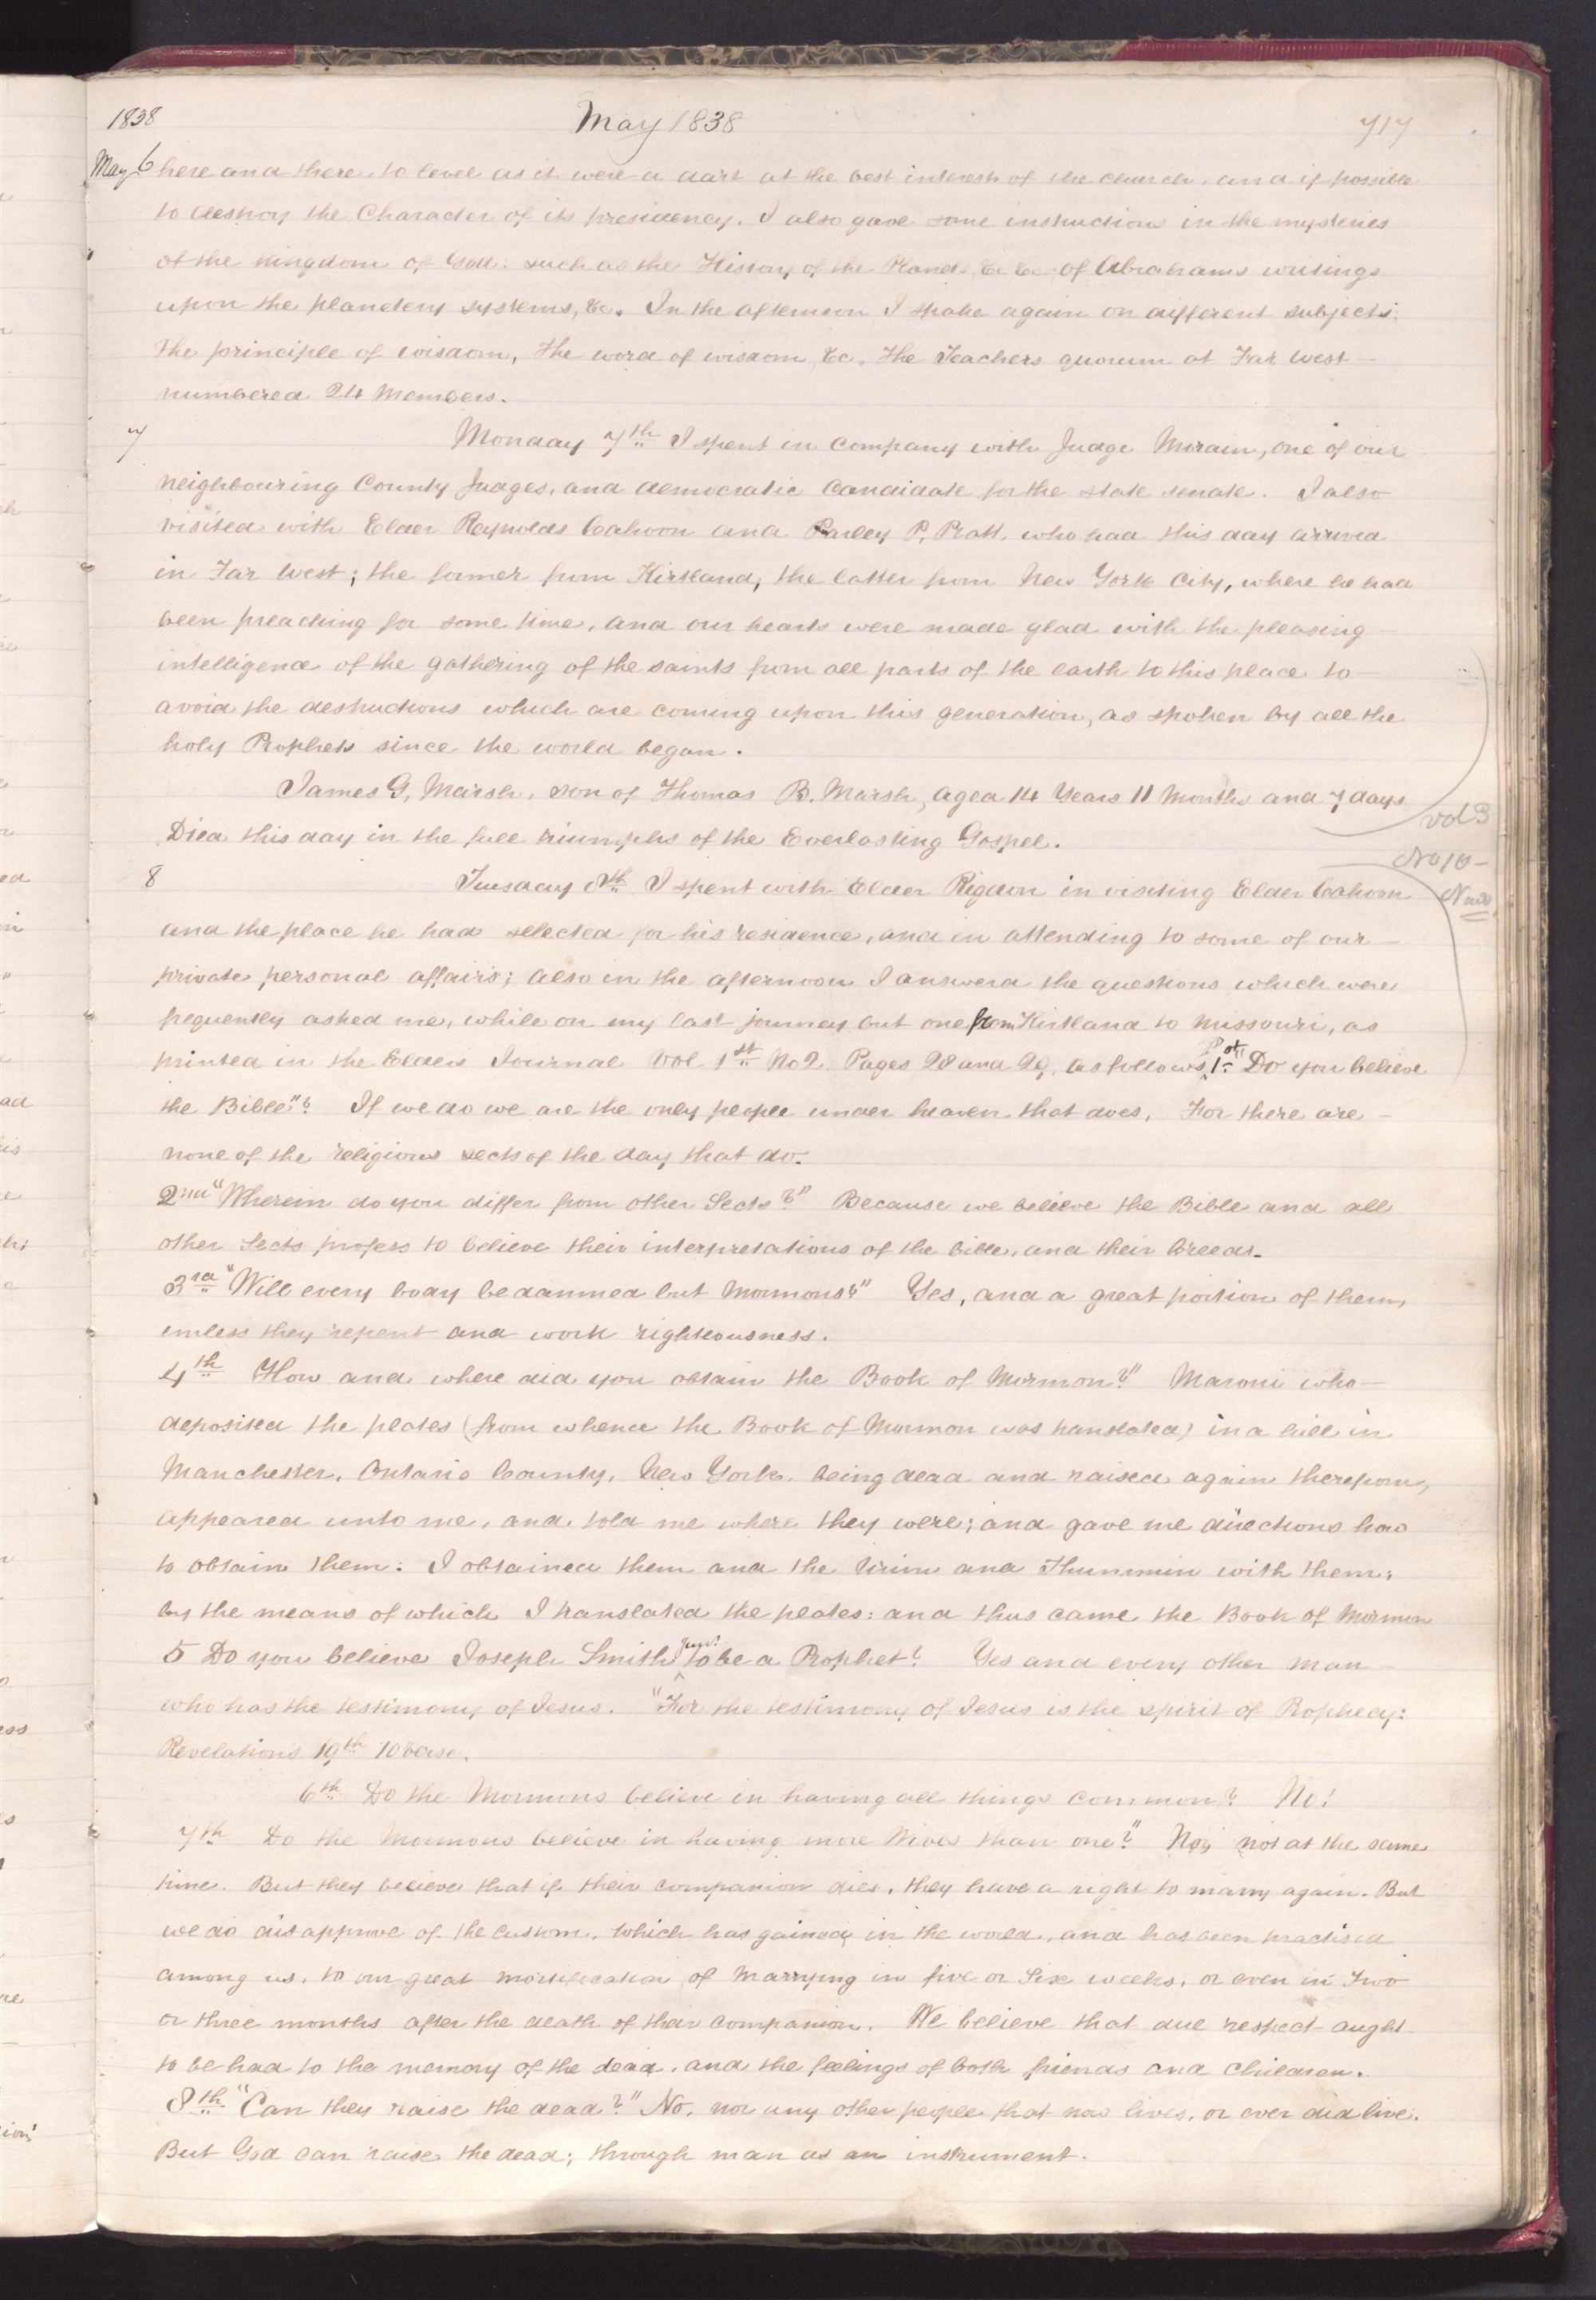 1838 May 1838 717
May 6 here and there, to level as it were a dart at the best interests of the church, and if possible
to destroy the Character of its presidency. I also gave some instructions in the mysteries
of the kingdom of God: such as the History of the Planets &c &c of Abrahams writings
upon the planetery systems, &c. In the afternoon I spoke again on different subjects:
the principle of wisdom, the word of wisdom, &c. The Teachers quorum at Far West
numbered 24 Members.
7 Monday 7th I spent in company with Judge Morain, one of our
neighbouring County Judges, and democratic Candidate for the state senate. I also
visited with Elder Reynolds Cahoon and Parley P. Pratt, who had this day arrived
in Far West; the former from Kirtland, the latter from New York City, where he had
been preaching for some time, and our hearts were made glad with the pleasing
intelligence of the gathering of the saints from all parts of the earth to this place to
avoid the destructions which are coming upon this generation, as spoken by all the
holy Prophets since the world began.
James G, Marsh, son of Thomas B. Marsh, aged 14 Years 11 Months and 7 days
Died this day in the full triumphs of the Everlasting Gospel.
vol 3
No 10
8 Tuesday 8th I spent with Elder Rigdon in visiting Elder Cahoon
and the place he had selected for his residence, and in attending to some of our
private personal affairs; also in the afternoon I answerd the questions which were
frequently asked me, while on my last journey but one from Kirtland to Missouri, as
printed in the Elders Journal Vol 1st No 2 Pages 28 and 29, as follows, 1st "Do you believe
the Bible"? If we do we are the only people under heaven that does, For there are
none of the religious sects of the day that do.
2nd "Wherein do you differ from other Sects?" Because we believe the Bible and all
other Sects profess to believe their interpretations of the bible, and their Creeds.
3rd "Will every body be damned but Mormons?" Yes, and a great portion of them,
unless they repent and work righteousness.
4th How and where did you obtain the Book of Mormon?" Maroni who
deposited the plates (from whence the Book of Mormon was translated) in a hill in
Manchester, Ontario County, New York, being dead and raised again therefrom,
appeared unto me, and told me where they were; and gave me directions how
to obtain them. I obtained them and the Urim and Thummim with them;
by the means of which I translated the plates: and thus came the Book of Mormon
5 Do you believe Joseph Smith Jun. to be a Prophet? Yes and every other man
who has the testimony of Jesus. "For the testimony of Jesus is the spirit of Prophecy:
Revelations 19th 10 verse.
6th Do the Mormons believe in having all things common? No!
7th Do the Mormons believe in having more Wives than one?" No, not at the same
time. But they believe that if their companion dies, they have a right to marry again. But
we do disapprove of the custom, which has gained in the world, and has been practised
among us, to our great mortification of Marrying in five or Six weeks, or even in Two
or three months after the death of their companion. We believe that due respect aught
to be had to the memory of the dead, and the feelings of both friends and children.
8th "Can they raise the dead?" No, nor any other people that now lives, or ever did live.
But God can raise the dead; through man as an instrument.